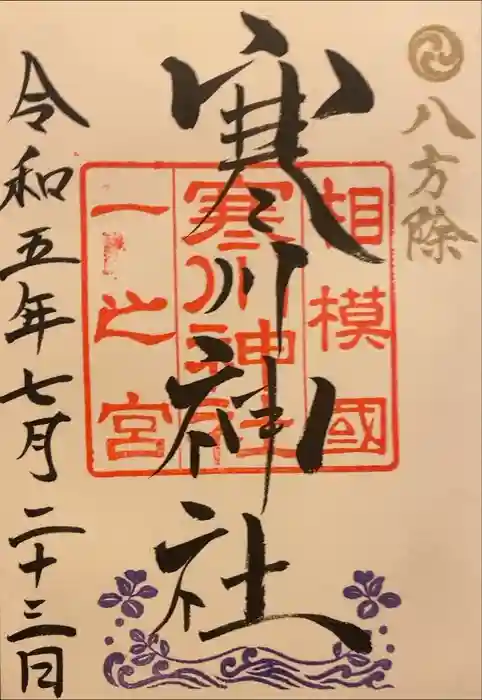 八方除
寒川神社
相模國
寒川神社
一之宮
令和五年七月二十三日